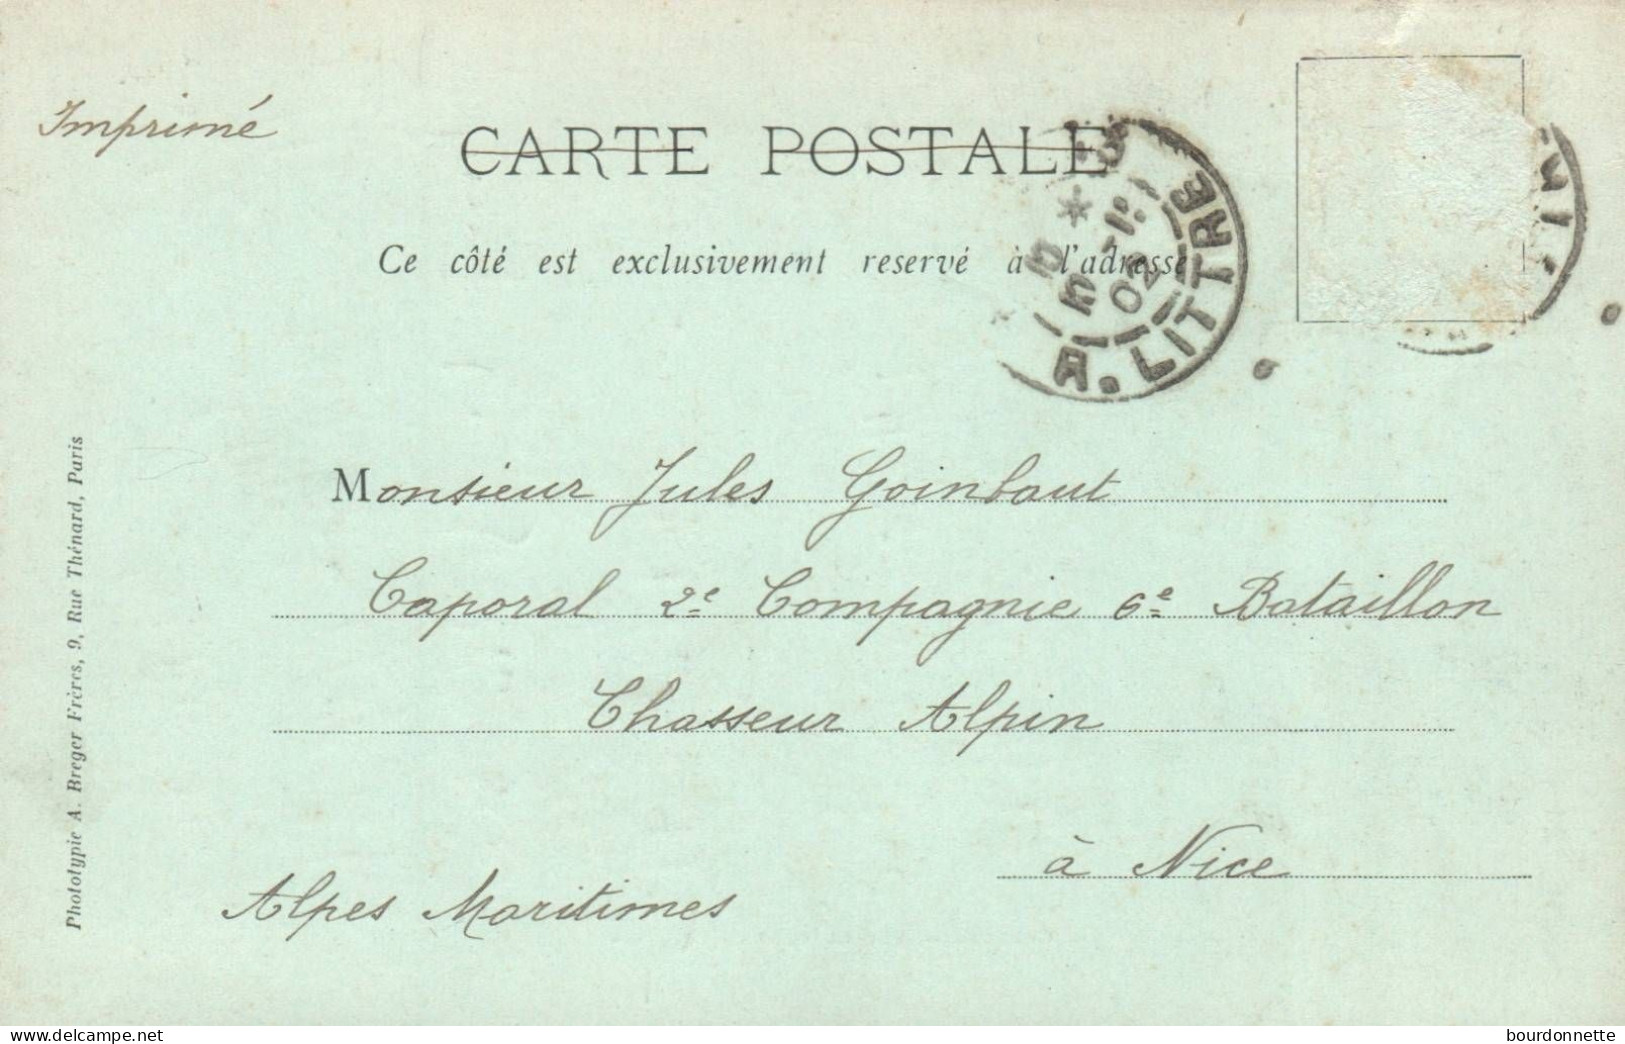 Imprimé
CARTE POSTALE
Ce côté est exclusivement reservé à l'adresse
R. LITTRÉ
02
Monsieur Jules Goinbaut
Caporal 2e Compagnie 6e Bataillon
Chasseur Alpin
à Nice
Alpes Maritimes
Phototypie A. Breger Frères, 9, Rue Thénard, Paris
www.delcampe.net
bourdonnette